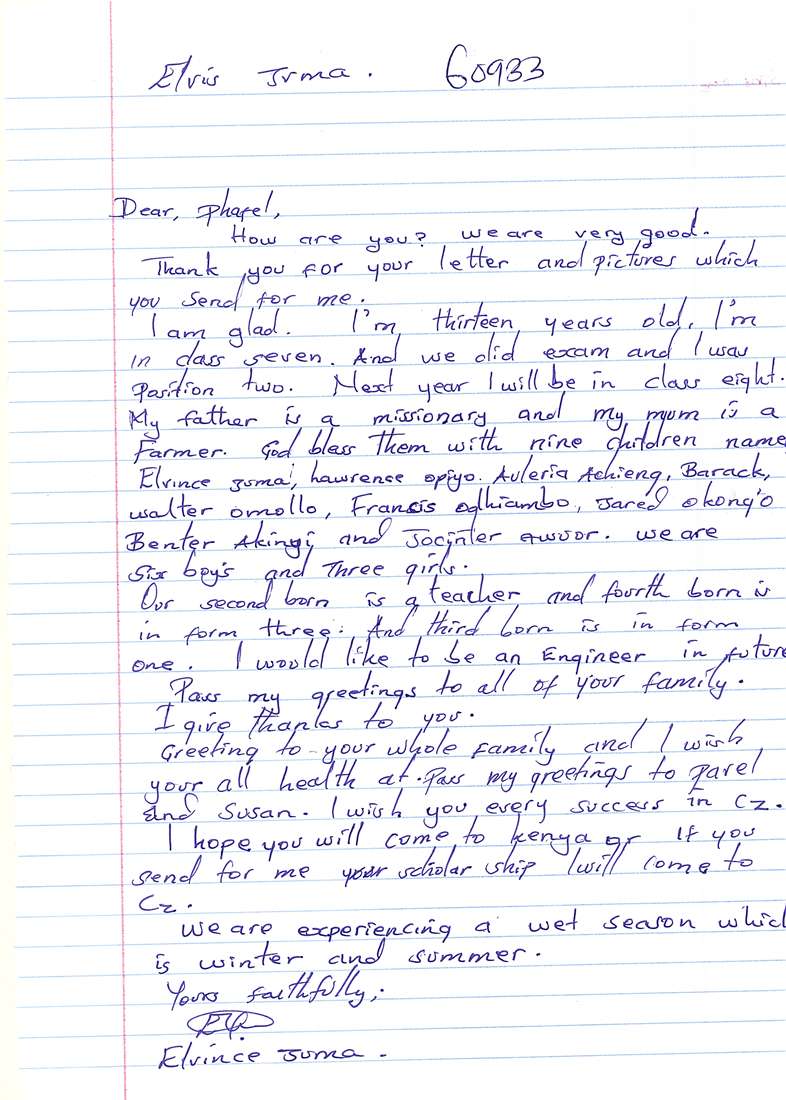 Elvis Juma. 60933
Dear, Phafel,
How are you? we are very good.
Thank you for your letter and pictures which
you send for me.
I am glad. I'm thirteen years old, I'm
in class seven. And we did exam and I was
Position two. Next year I will be in class eight.
My father is a missionary and my mum is a
Farmer. God bless them with nine children name
Elvince Juma, Lawrence opiyo. Auleria Achieng, Barack,
walter omollo, Francis odhiambo, Jared okong'o
Benter Akingi and Jocinter awuor. we are
six boy's and three girls.
Our second born is a teacher and fourth born is
in form three. And third born is in form
one. I would like to be an Engineer in future
Pass my greetings to all of your family.
I give thanks to you.
Greeting to your whole family and I wish
your all health at. Pass my greetings to Pavel
and Susan. I wish you every success in Cz.
I hope you will come to Kenya or If you
send for me your scholar ship I will come to
Cz.
We are experiencing a wet season which
is winter and summer.
Yours faithfully;
Elvince Juma.